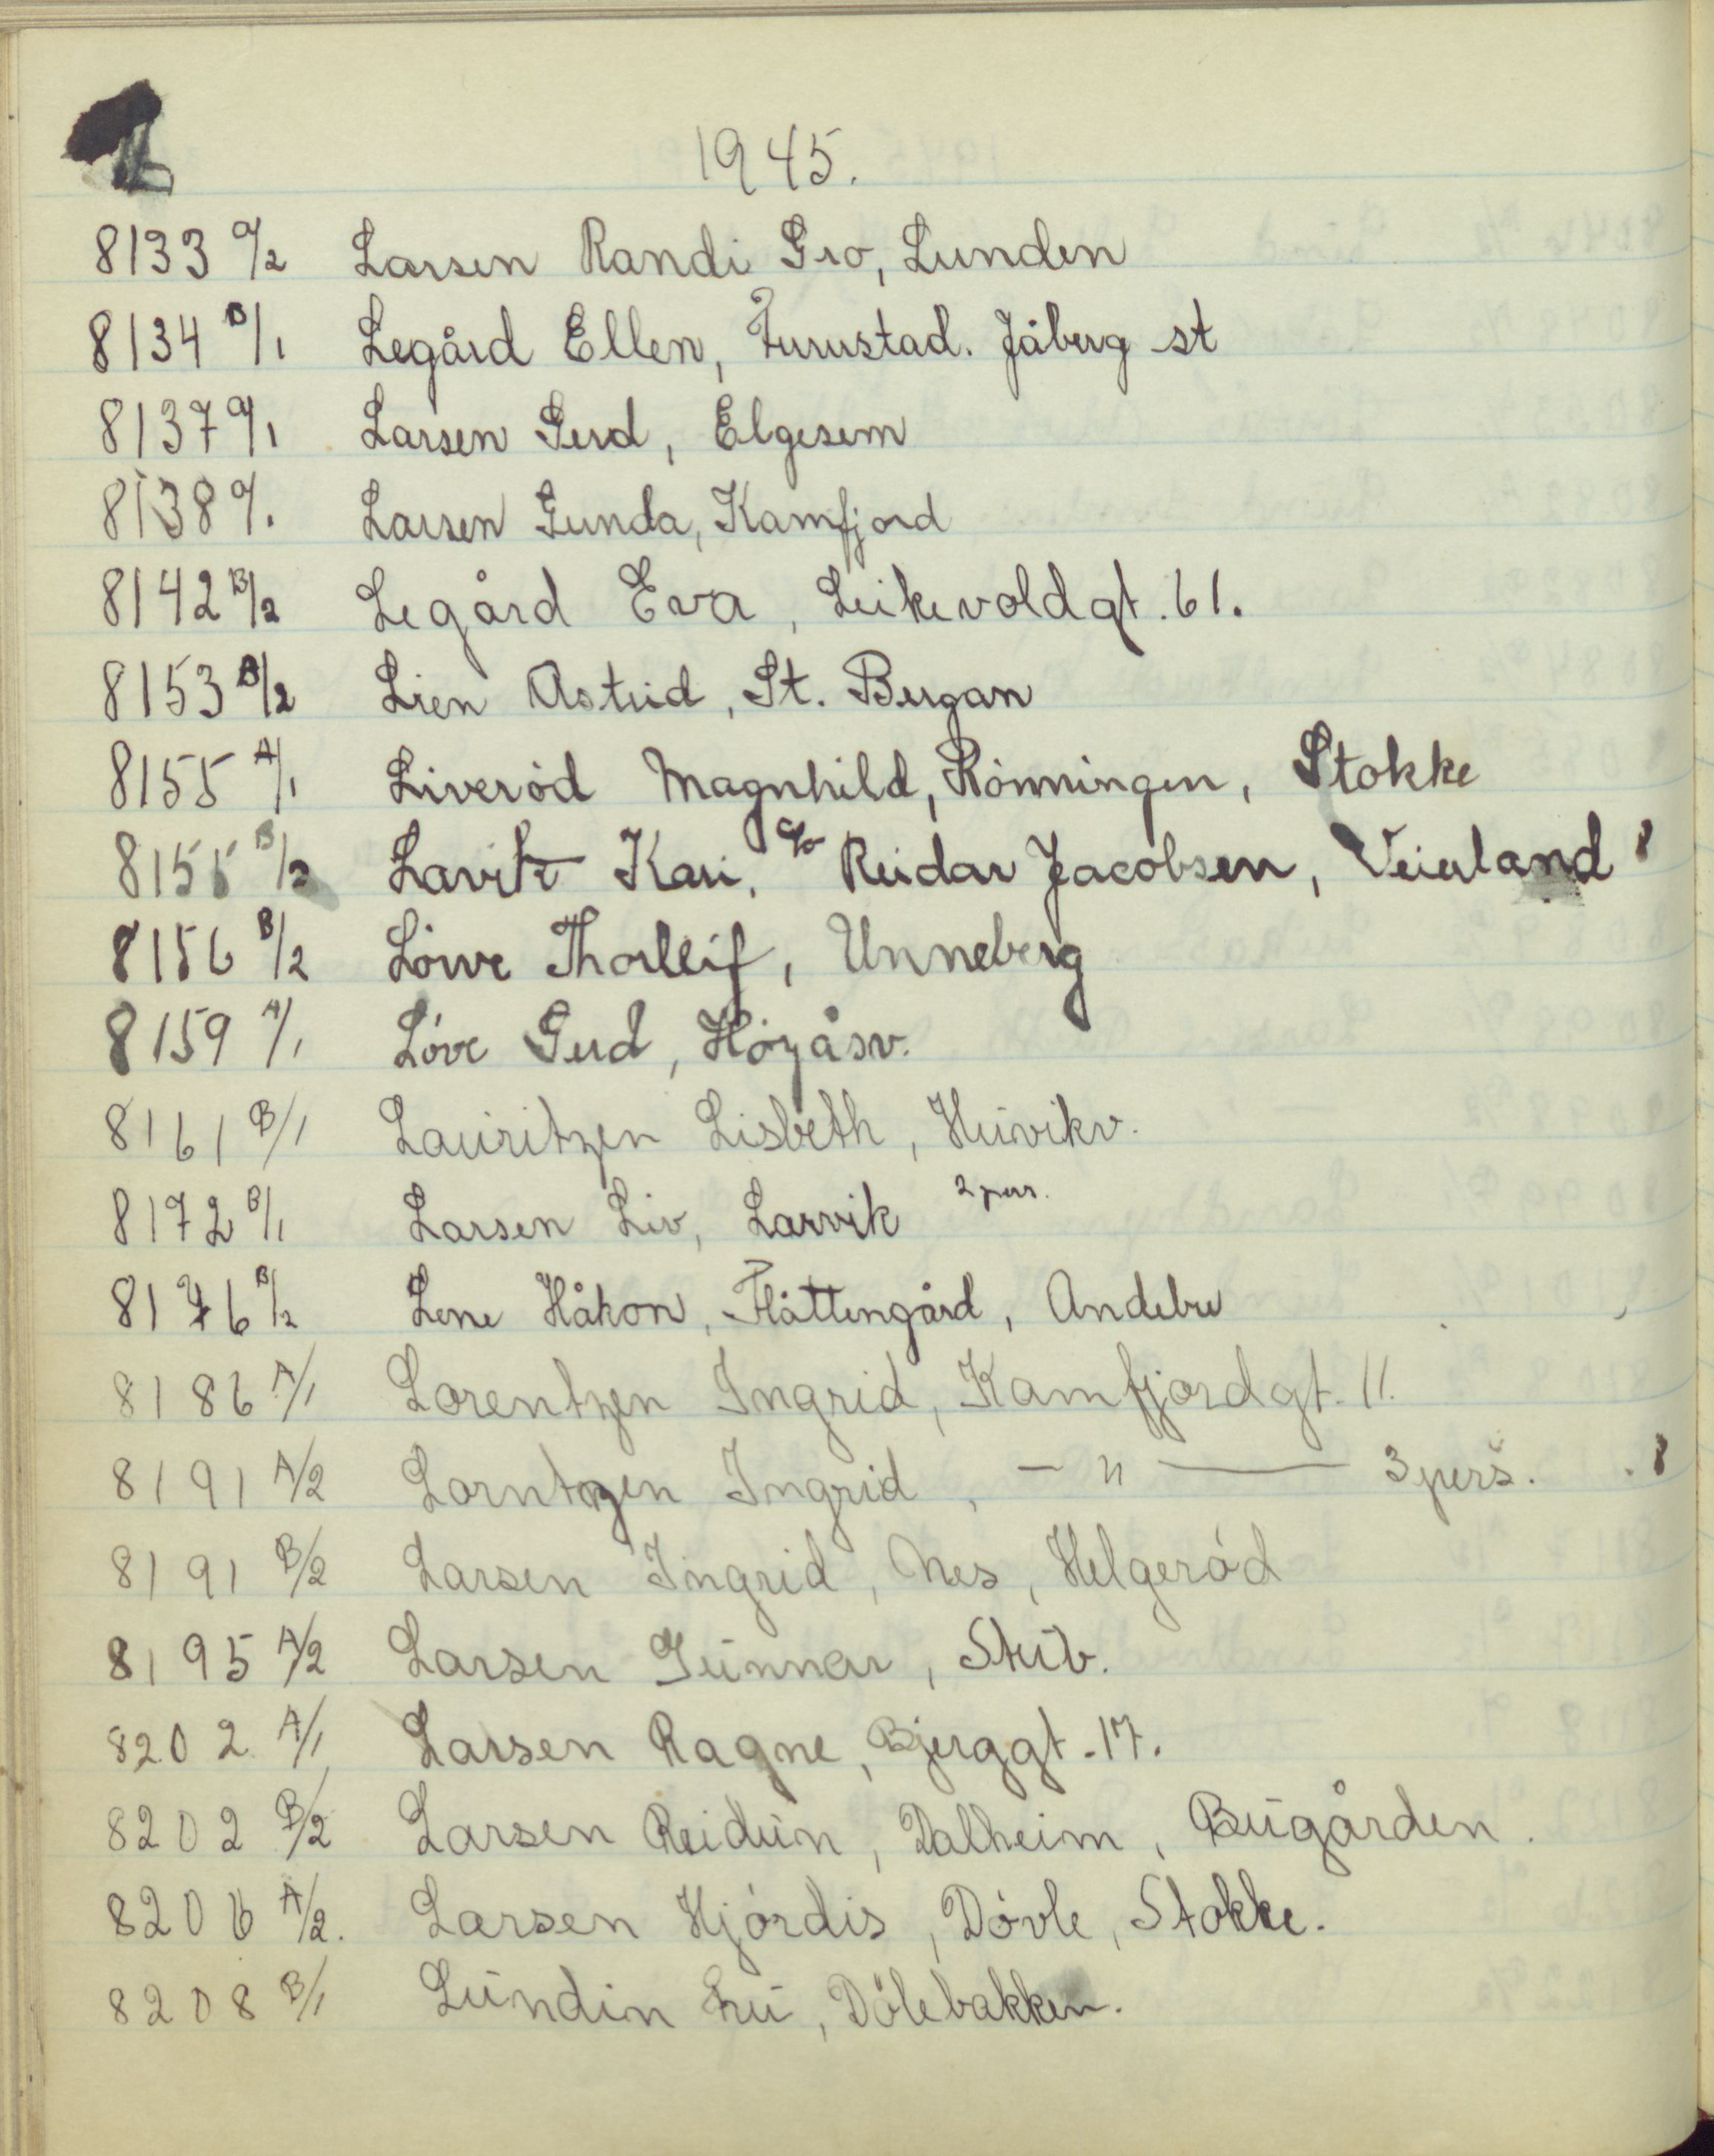 L
1945.
8133 a/2 Larsen Randi Gro, Lunden
8134 B/1 Legård Ellen, Furustad. Jåberg st
8137 a/1 Larsen Gerd, Elgesem
8138 a/. Larsen Gunda, Kamfjord
8142 B/2 Legård Eva, Leikevoldgt. 61.
8153 B/2 Lien Astrid, St. Bergan
8155 A/1 Liverød Magnhild, Rønningen, Stokke
8155 B/2 Lavik Kari, c/o Reidar Jacobsen, Veierland
8156 B/2 Löwe Thorleif, Unneberg
8159 A/1 Löve Gerd, Høyåsv.
8161 B/1 Lauritzen Lisbeth, Huvikv.
8172 B/1 Larsen Liv, Larvik 2 pers.
8176 B/2 Lene Håkon, Flåttengård, Andebu
8186 A/1 Lorentzen Ingrid, Kamfjordgt. 11.
8191 A/2 Lorntzen Ingrid, — " — 3 pers.
8191 B/2 Larsen Ingrid, Nes, Helgeród
8195 A/2 Larsen Gunnar, Stub.
8202 A/1 Larsen Ragne, Bjerggt. 17.
8202 B/2 Larsen Reidun, Dalheim, Bugården.
8206 A/2. Larsen Hjórdis, Dóvle, Stokke.
8208 B/1 Lundin fru, Dölebakken.